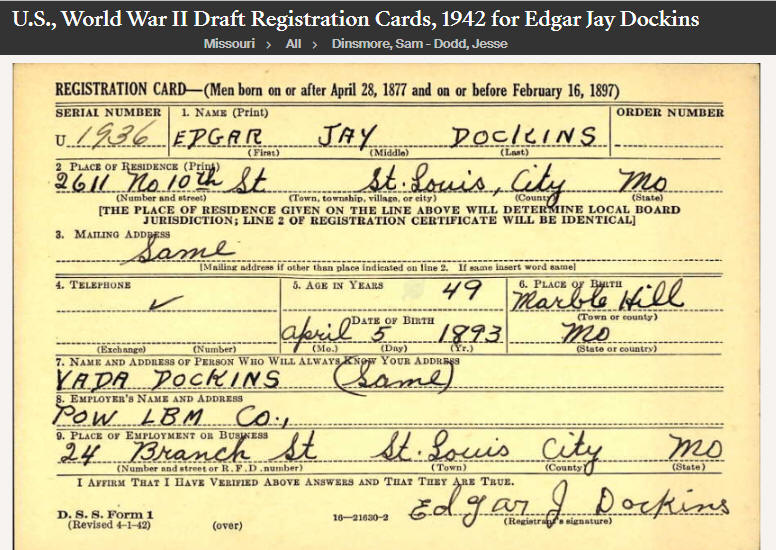 U.S., World War II Draft Registration Cards, 1942 for Edgar Jay Dockins
Missouri > All > Dinsmore, Sam - Dodd, Jesse
REGISTRATION CARD—(Men born on or after April 28, 1877 and on or before February 16, 1897)
SERIAL NUMBER 1. NAME (Print) ORDER NUMBER
U 1936 EDGAR JAY DOCKINS
(First) (Middle) (Last)
2 PLACE OF RESIDENCE (Print)
2611 No 10th St St. Louis, City Mo
(Number and street) (Town, township, village, or city) (County) (State)
[THE PLACE OF RESIDENCE GIVEN ON THE LINE ABOVE WILL DETERMINE LOCAL BOARD
JURISDICTION; LINE 2 OF REGISTRATION CERTIFICATE WILL BE IDENTICAL]
3. MAILING ADDRESS
Same
[Mailing address if other than place indicated on line 2. If same insert word same]
4. TELEPHONE 5. AGE IN YEARS 49 6. PLACE OF BIRTH
✓ Marble Hill
DATE OF BIRTH (Town or county)
April 5 1893 Mo
(Exchange) (Number) (Mo.) (Day) (Yr.) (State or country)
7. NAME AND ADDRESS OF PERSON WHO WILL ALWAYS KNOW YOUR ADDRESS
VADA DOCKINS (Same)
8. EMPLOYER'S NAME AND ADDRESS
POW LBM CO.,
9. PLACE OF EMPLOYMENT OR BUSINESS
24 Branch St St. Louis City Mo
(Number and street or R. F. D. number) (Town) (County) (State)
I AFFIRM THAT I HAVE VERIFIED ABOVE ANSWERS AND THAT THEY ARE TRUE.
Edgar J Dockins
D. S. S. Form 1 (Registrant's signature)
(Revised 4-1-42) (over) 16—21630-2